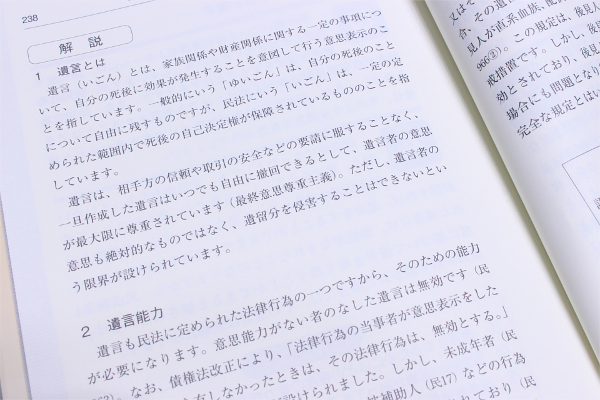 238
解 説
1 遺言とは
遺言（いごん）とは、家族関係や財産関係に関する一定の事項につ
いて、自分の死後に効果が発生することを意図して行う意思表示のこ
とを指しています。一般的にいう「ゆいごん」は、自分の死後のこと
について自由に残すものですが、民法にいう「いごん」は、一定の定
められた範囲内で死後の自己決定権が保障されているもののことを指
しています。
遺言は、相手方の信頼や取引の安全などの要請に服することなく、
一旦作成した遺言はいつでも自由に撤回できるとして、遺言者の意思
が最大限に尊重されています（最終意思尊重主義）。ただし、遺言者の
意思も絶対的なものではなく、遺留分を侵害することはできないとい
う限界が設けられています。
2 遺言能力
遺言も民法に定められた法律行為の一つですから、そのための能力
が必要になります。意思能力がない者のなした遺言は無効です（民
なお、債権法改正により、「法律行為の当事者が意思表示をした
有しなかったときは、その法律行為は、無効とする。」
設けられました。しかし、未成年者（民
補助人（民17）などの行為
されており（民
又は
合、その遺
見人が直系血族、配
966②）。この規定は、後見人
戒措置です。しかし、後
効とされており、後見
場合にも問題となり
完全な規定とはい